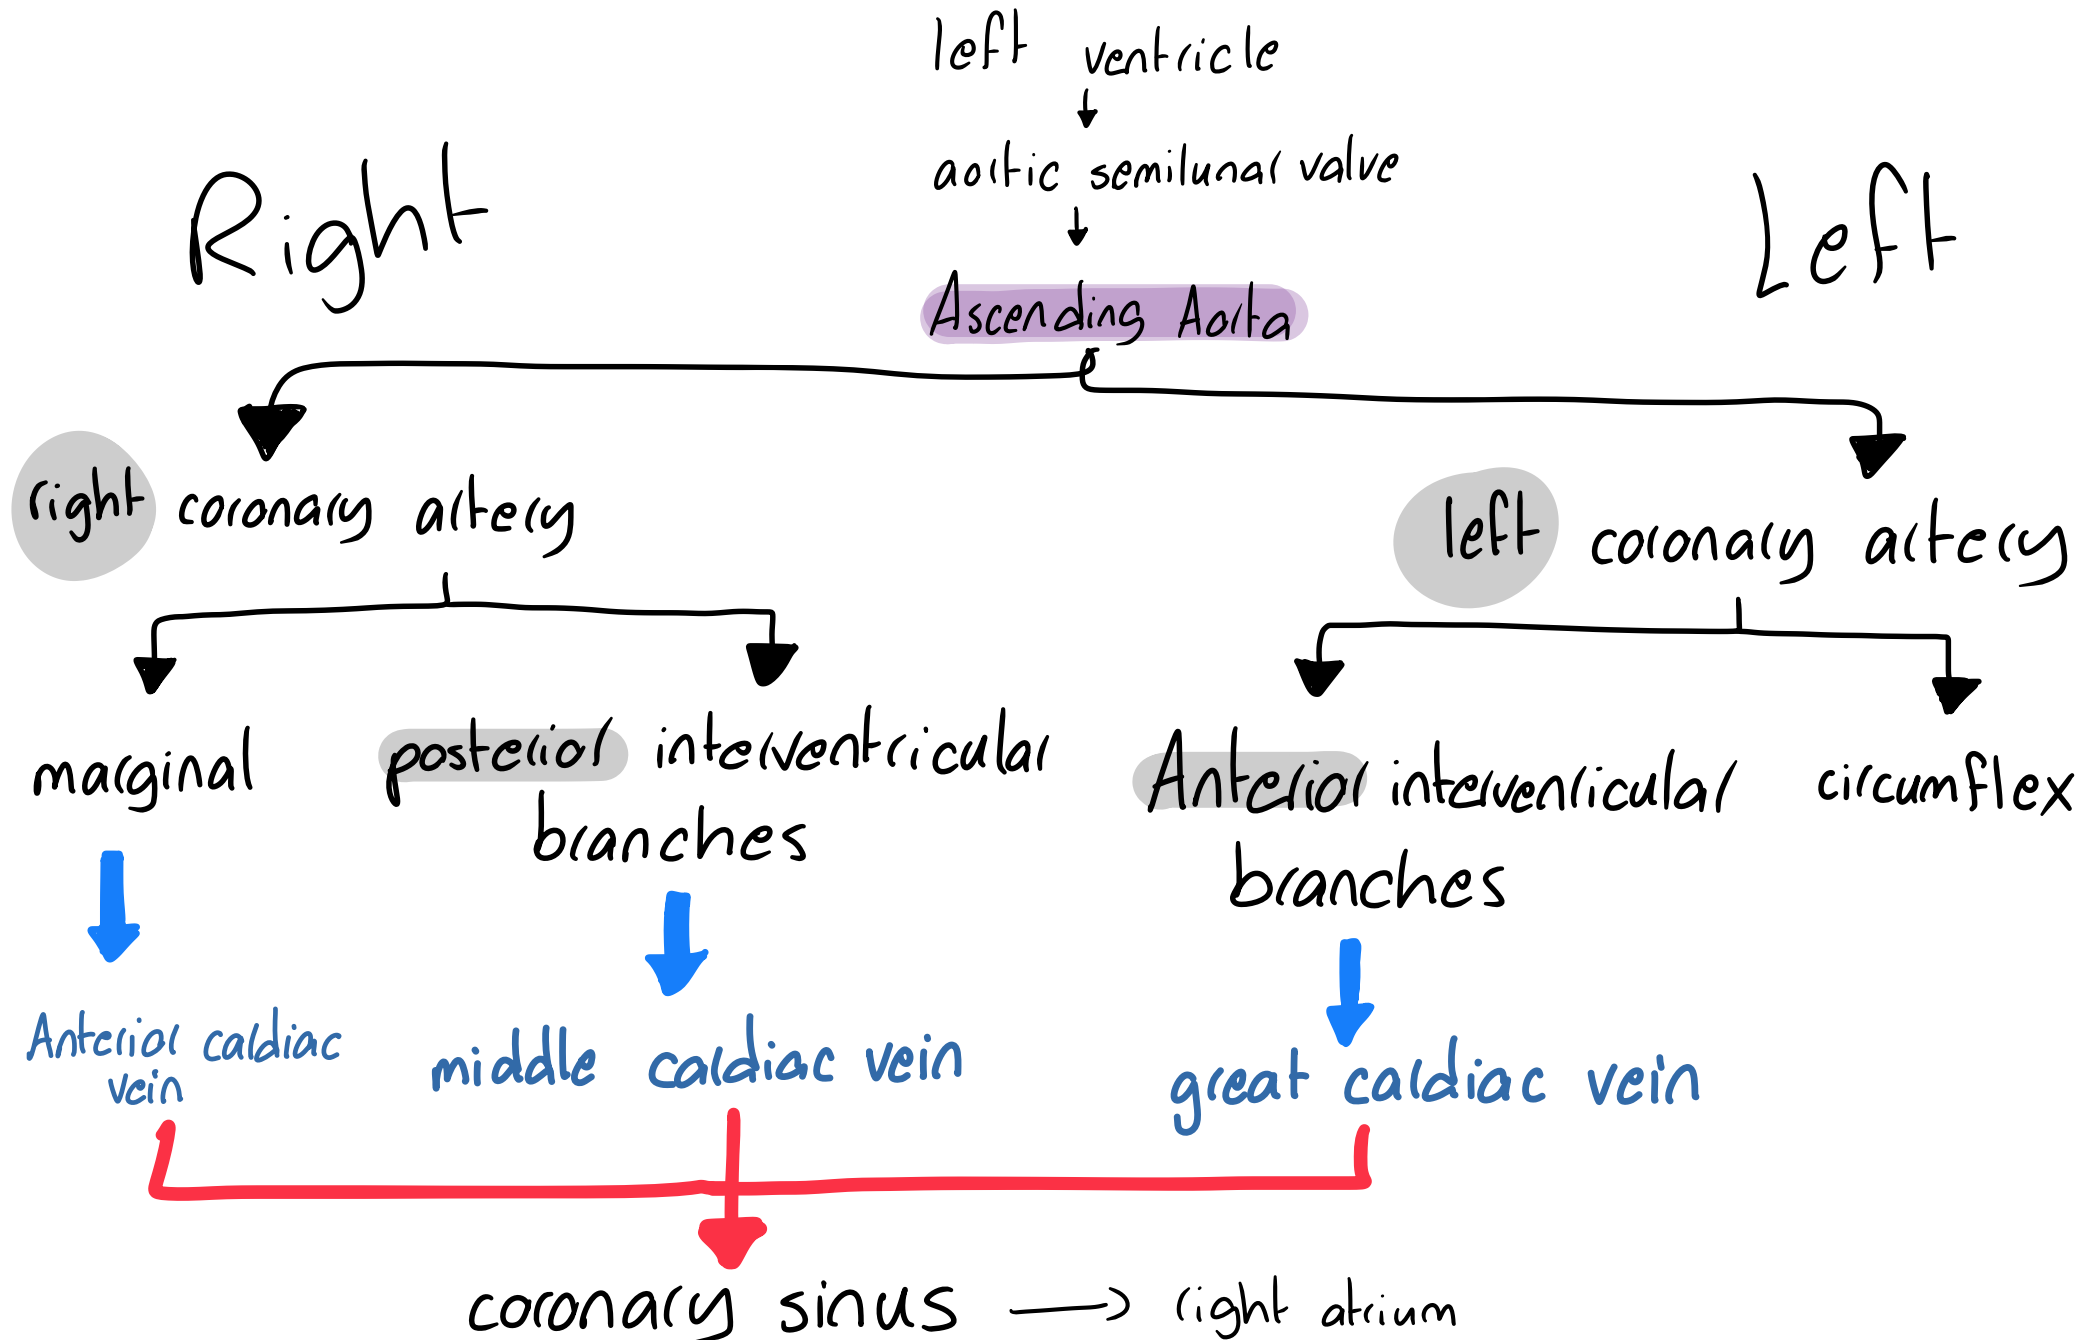 left ventricle
aortic semilunar valve
Right
Left
Ascending Aorta
right coronary artery
left coronary artery
marginal
posterior interventricular
branches
Anterior intervenricular
branches
circumflex
Anterior cardiac
vein
middle cardiac vein
great cardiac vein
coronary sinus → right atrium